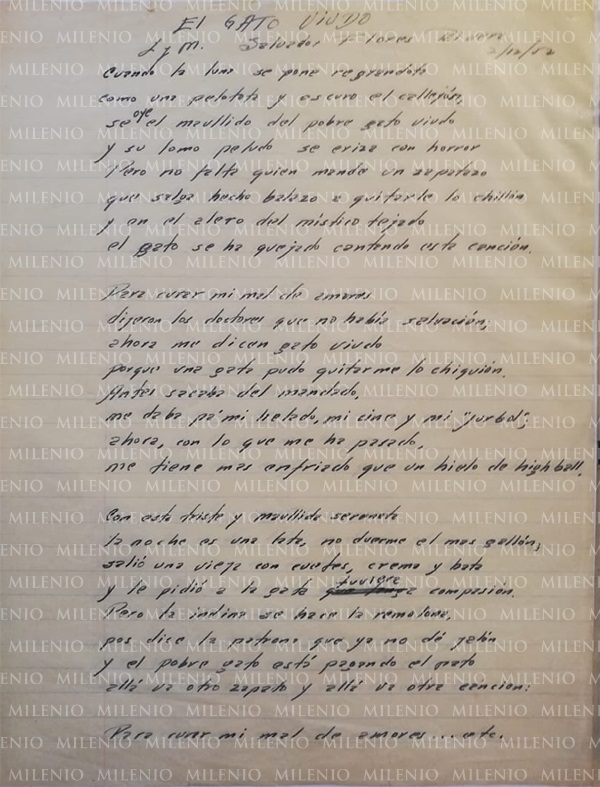 El GATO VIUDO
L y M. Salvador Flores Rivera
2/10/52
Cuando la luna se pone regrandota
como una pelotota y escuro el callejón,
se oye el maullido del pobre gato viudo
y su lomo peludo se eriza con horror
Pero no falta quien mande un zapatazo
que salga hecho balazo a quitarle lo chillón
y en el alero del místico tejado
el gato se ha quejado cantando esta canción.
Para curar mi mal de amores
dijeron los doctores que no había salvación,
ahora me dicen gato viudo
porque una gata pudo quitarme lo chiquión.
Antes sacaba del mandado,
me daba pa' mi helado, mi cine y mi "jurbol";
ahora, con lo que me ha pasado,
me tiene mas enfriado que un hielo de high ball.
Con esta triste y maullida serenata
la noche es una lata, no duerme el mas gallón;
salió una vieja con cuetes, crema y bata
y le pidió a la gata tuviera compasión.
Pero la indina se hace la remolona,
pos dice la patrona que ya no dé jalón
y el pobre gato está pagando el pato
allá va otro zapato y allá va otra canción:
Para curar mi mal de amores... etc.
MILENIO